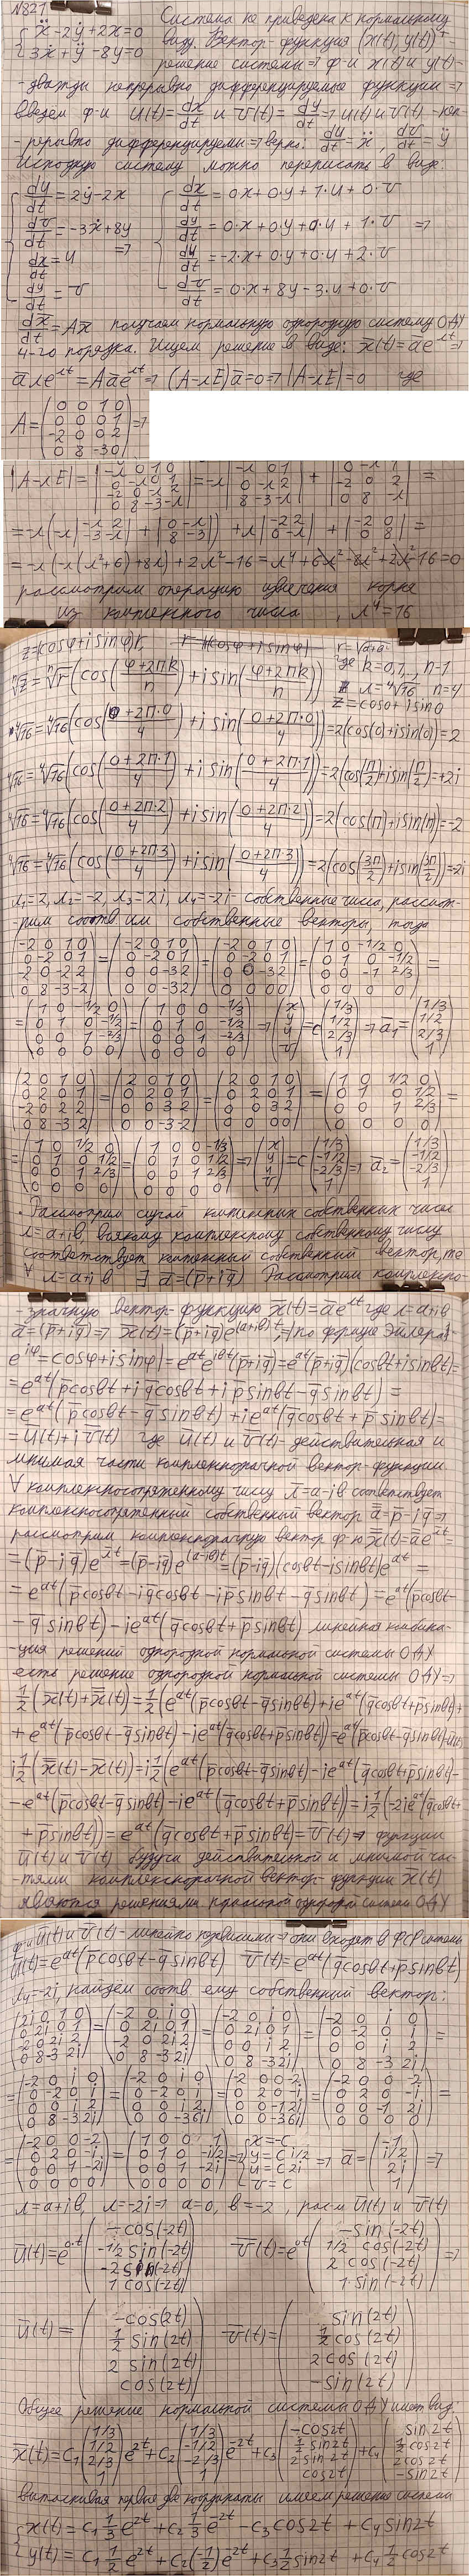 №821
{ẍ - 2ẏ + 2x = 0
{3ẋ + ÿ - 8y = 0
Система не приведена к нормальному
виду. Вектор-функция (x(t), y(t))ᵀ -
решение системы ⇒ ф-и x(t) и y(t) -
- дважды непрерывно дифференцируемые функции ⇒
введём ф-и u(t) = dx/dt и v(t) = dy/dt ⇒ u(t) и v(t) - неп-
- рерывно дифференцируемы ⇒ верно: du/dt = ẍ, dv/dt = ÿ
Исходную систему можно переписать в виде:
{du/dt = 2ẏ - 2x
{dv/dt = -3ẋ + 8y ⇒
{dx/dt = u
{dy/dt = v
{dx/dt = 0x + 0·y + 1·u + 0·v
{dy/dt = 0·x + 0·y + 0·u + 1·v ⇒
{du/dt = -2·x + 0·y + 0·u + 2·v
{dv/dt = 0·x + 8y - 3·u + 0·v
dx̄/dt = Ax̄ получаем нормальную однородную систему ОДУ
4-го порядка. Ищем решение в виде: x̄(t) = āe^{λt} ⇒
āλe^{λt} = Aāe^{λt} ⇒ (A - λE)ā = 0 ⇒ |A - λE| = 0 где
A = (0 0 1 0; 0 0 0 1; -2 0 0 2; 0 8 -3 0) ⇒
|A - λE| = |-λ 0 1 0; 0 -λ 0 1; -2 0 -λ 2; 0 8 -3 -λ| = -λ|-λ 0 1; 0 -λ 2; 8 -3 -λ| + |0 -λ 1; -2 0 2; 0 8 -λ| =
= -λ(-λ|-λ 2; -3 -λ| + |0 -λ; 8 -3|) + λ|-2 2; 0 -λ| + |-2 0; 0 8| =
= -λ(-λ(λ²+6) + 8λ) + 2λ² - 16 = λ⁴ + 6λ² - 8λ² + 2λ² - 16 = 0
рассмотрим операцию извлечения корня
из комплексного числа, λ⁴ = 16
z = (cosφ + i sinφ)r,
ⁿ√z = ⁿ√r(cos((φ+2πk)/n) + i sin((φ+2πk)/n)) где k = 0, 1, .., n-1
λ = ⁴√16 n = 4
z = cos0 + i sin0
⁴√16 = ⁴√16(cos((0+2π·0)/4) + i sin((0+2π·0)/4)) = 2(cos(0) + i sin(0)) = 2
⁴√16 = ⁴√16(cos((0+2π·1)/4) + i sin((0+2π·1)/4)) = 2(cos(π/2) + i sin(π/2)) = +2i
⁴√16 = ⁴√16(cos((0+2π·2)/4) + i sin((0+2π·2)/4)) = 2(cos(π) + i sin(π)) = -2
⁴√16 = ⁴√16(cos((0+2π·3)/4) + i sin((0+2π·3)/4)) = 2(cos(3π/2) + i sin(3π/2)) = -2i
λ₁ = 2, λ₂ = -2, λ₃ = 2i, λ₄ = -2i собственные числа, рассмот-
- рим соотв. им собственные векторы, тогда
(-2 0 1 0; 0 -2 0 1; -2 0 -2 2; 0 8 -3 -2) = (-2 0 1 0; 0 -2 0 1; 0 0 -3 2; 0 0 -3 2) = (-2 0 1 0; 0 -2 0 1; 0 0 -3 2; 0 0 0 0) = (1 0 -1/2 0; 0 1 0 -1/2; 0 0 -1 2/3; 0 0 0 0) =
= (1 0 -1/2 0; 0 1 0 -1/2; 0 0 1 -2/3; 0 0 0 0) = (1 0 0 -1/3; 0 1 0 -1/2; 0 0 1 -2/3; 0 0 0 0) ⇒ (x; y; u; v) = c(1/3; 1/2; 2/3; 1) ⇒ ā₁ = (1/3; 1/2; 2/3; 1)
(2 0 1 0; 0 2 0 1; -2 0 2 2; 0 8 -3 2) = (2 0 1 0; 0 2 0 1; 0 0 3 2; 0 0 -3 -2) = (2 0 1 0; 0 2 0 1; 0 0 3 2; 0 0 0 0) = (1 0 1/2 0; 0 1 0 1/2; 0 0 1 2/3; 0 0 0 0) =
= (1 0 1/2 0; 0 1 0 1/2; 0 0 1 2/3; 0 0 0 0) = (1 0 0 -1/3; 0 1 0 1/2; 0 0 1 2/3; 0 0 0 0) ⇒ (x; y; u; v) = c(1/3; -1/2; -2/3; 1) ⇒ ā₂ = (1/3; -1/2; -2/3; 1)
Рассмотрим случай комплексных собственных чисел
λ = a+ib, всякому комплексному собственному числу
соответствует комплексный собственный вектор, те
∀ λ = a+ib ∃ ā = (p̄+iq̄) Рассмотрим комплексно-
- значную вектор-функцию x̄(t) = āe^{λt} где λ = a+ib
ā = (p̄+iq̄) ⇒ x̄(t) = (p̄+iq̄)e^{(a+ib)t} = |по формуле Эйлера:
e^{iφ} = cosφ + i sinφ| = e^{at}e^{ibt}(p̄+iq̄) = e^{at}(p̄+iq̄)(cosbt + i sinbt) =
= e^{at}(p̄cosbt + iq̄cosbt + ip̄sinbt - q̄sinbt) =
= e^{at}(p̄cosbt - q̄sinbt) + ie^{at}(q̄cosbt + p̄sinbt) =
= ū(t) + iv̄(t) где ū(t) и v̄(t) - действительная и
мнимая части комплекснозначной вектор-функции.
∀ комплексносопряженному числу λ̄ = a-ib сответствует
комплексносопряженный собственный вектор ā = p̄-iq̄ ⇒
рассмотрим комплекснозначную вектор ф-ю x̄(t) = āe^{λt} =
= (p̄-iq̄)e^{λt} = (p̄-iq̄)e^{(a-ib)t} = (p̄-iq̄)(cosbt - i sinbt)e^{at} =
= e^{at}(p̄cosbt - iq̄cosbt - ip̄sinbt - q̄sinbt) = e^{at}(p̄cosbt-
- q̄sinbt) - ie^{at}(q̄cosbt + p̄sinbt) линейная комбина-
- ция решений однородной нормальной системы ОДУ
есть решение однородной нормальной системы ОДУ ⇒
1/2(x̄(t) + x̄̄(t)) = 1/2(e^{at}(p̄cosbt - q̄sinbt) + ie^{at}(q̄cosbt + p̄sinbt) +
+ e^{at}(p̄cosbt - q̄sinbt) - ie^{at}(q̄cosbt + p̄sinbt)) = e^{at}(p̄cosbt - q̄sinbt) = ū(t)
i1/2(x̄̄(t) - x̄(t)) = i1/2(e^{at}(p̄cosbt - q̄sinbt) - ie^{at}(q̄cosbt + p̄sinbt) -
- e^{at}(p̄cosbt - q̄sinbt) - ie^{at}(q̄cosbt + p̄sinbt)) = i1/2(-2ie^{at}(q̄cosbt +
+ p̄sinbt)) = e^{at}(q̄cosbt + p̄sinbt) = v̄(t) ⇒ функции
ū(t) и v̄(t) будучи действительной и мнимой час-
- тями комплекснозначной вектор-функции x̄(t)
являются решениями нормальной однородной системы ОДУ
ф-и ū(t) и v̄(t) - линейно независимы ⇒ они входят в ФСР системы
ū(t) = e^{at}(p̄cosbt - q̄sinbt) v̄(t) = e^{at}(q̄cosbt + p̄sinbt)
λ₄ = -2i, найдём соотв. ему собственный вектор:
(2i 0 1 0; 0 2i 0 1; -2 0 2i 2; 0 8 -3 2i) = (-2 0 i 0; 0 2i 0 1; -2 0 2i 2; 0 8 -3 2i) = (-2 0 i 0; 0 2i 0 1; 0 0 i 2; 0 8 -3 2i) = (-2 0 i 0; 0 -2 0 i; 0 0 i 2; 0 8 -3 2i) =
= (-2 0 i 0; 0 -2 0 i; 0 0 i 2; 0 8 -3 2i) = (-2 0 i 0; 0 -2 0 i; 0 0 i 2; 0 0 -3 6i) = (-2 0 0 -2; 0 2 0 -i; 0 0 -1 2i; 0 0 -3 6i) = (-2 0 0 -2; 0 2 0 -i; 0 0 -1 2i; 0 0 0 0) =
= (-2 0 0 -2; 0 2 0 -i; 0 0 1 -2i; 0 0 0 0) = (1 0 0 1; 0 1 0 -i/2; 0 0 1 -2i; 0 0 0 0) ⇒ {x = -c; y = c i/2; u = c 2i; v = c ⇒ ā = (-1; i/2; 2i; 1) ⇒
λ = a+ib, λ = -2i ⇒ a = 0, b = -2, расм ū(t) и v̄(t)
ū(t) = e^{0·t}(-cos(-2t); -1/2 sin(-2t); -2 sin(-2t); 1 cos(-2t)) v̄(t) = e^{0t}(-sin(-2t); 1/2 cos(-2t); 2 cos(-2t); 1·sin(-2t)) ⇒
ū(t) = (-cos(2t); 1/2 sin(2t); 2 sin(2t); cos(2t)) v̄(t) = (sin(2t); 1/2 cos(2t); 2 cos(2t); -sin(2t))
Общее решение нормальной системы ОДУ имеет вид
x̄(t) = C₁(1/3; 1/2; 2/3; 1)e^{2t} + C₂(1/3; -1/2; -2/3; 1)e^{-2t} + C₃(-cos2t; 1/2 sin2t; 2 sin2t; cos2t) + C₄(sin2t; 1/2 cos2t; 2cos2t; -sin2t)
вытаскивая первые две координаты имеем решение системы
{x(t) = C₁ 1/3 e^{2t} + C₂ 1/3 e^{-2t} - C₃ cos2t + C₄ sin2t
{y(t) = C₁ 1/2 e^{2t} + C₂(-1/2)e^{-2t} + C₃ 1/2 sin2t + C₄ 1/2 cos2t